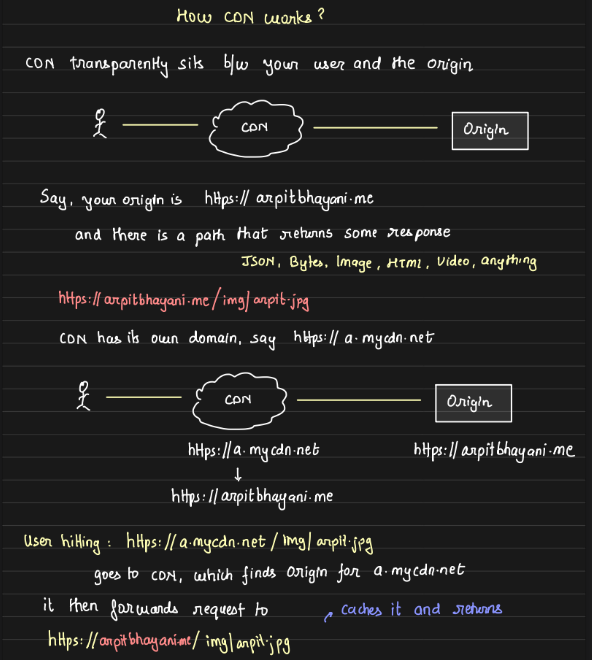 How CDN works?
CDN transparently sits b/w your user and the origin
CDN
Origin
Say, your origin is https://arpitbhayani.me
and there is a path that returns some response
JSON, Bytes, Image, HTML, Video, anything
https://arpitbhayani.me/img/arpit.jpg
CDN has its own domain, say https://a.mycdn.net
CDN
Origin
https://a.mycdn.net https://arpitbhayani.me
↓
https://arpitbhayani.me
User hitting: https://a.mycdn.net/img/arpit.jpg
goes to CDN, which finds Origin for a.mycdn.net
it then forwards request to caches it and returns
https://arpitbhayani.me/img/arpit.jpg